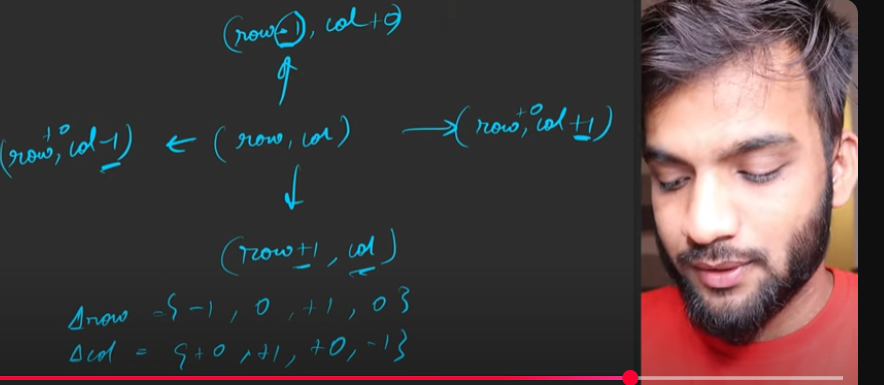 (row-1, col+0)
(row+0, col-1) ← (row, col) → (row+0, col+1)
(row+1, col)
Δrow = {-1, 0, +1, 0}
Δcol = {+0, +1, +0, -1}